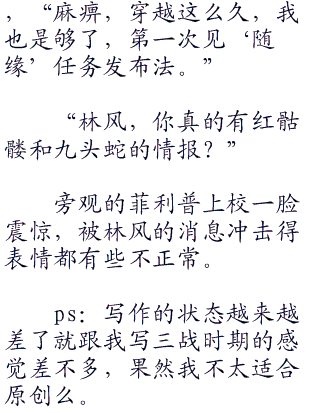 ，“麻痹，穿越这么久，我
也是够了，第一次见‘随
缘’任务发布法。”
“林风，你真的有红骷
髅和九头蛇的情报？”
旁观的菲利普上校一脸
震惊，被林风的消息冲击得
表情都有些不正常。
ps：写作的状态越来越
差了就跟我写三战时期的感
觉差不多，果然我不太适合
原创么。